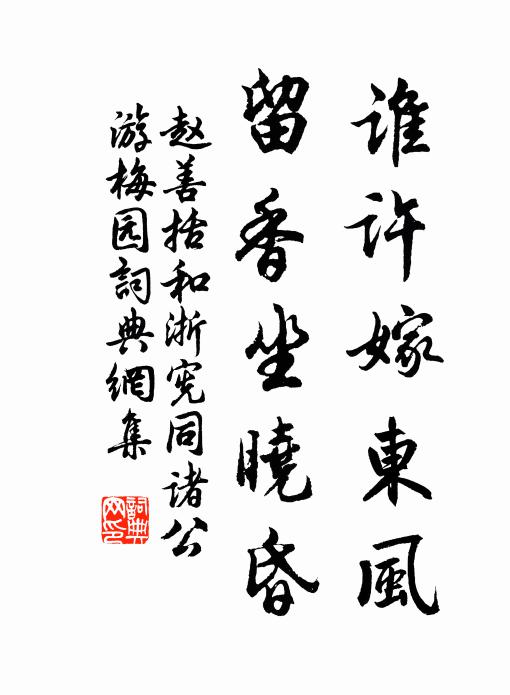 誰許嫁東風
留香坐曉昏
赵善括和浙宪同诸公
游梅园詞典網集
詞典
网印